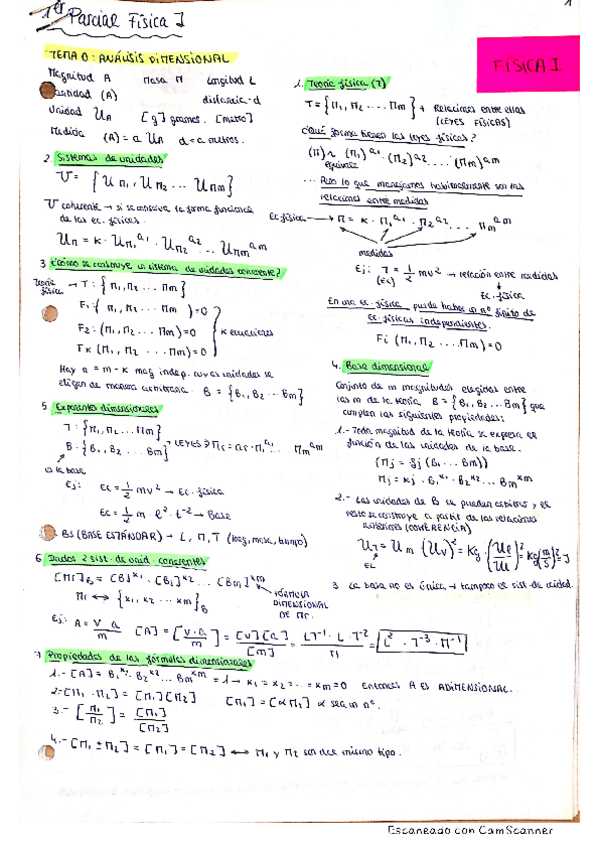 1er Parcial Física I
1
FÍSICA I
TEMA 0: ANÁLISIS DIMENSIONAL
Magnitud A   Masa M   Longitud L
Cantidad (A)   distancia - d
Unidad U_A   [g] gramos. [metro]
Medida (A) = a U_A   d = a metros.
2. Sistemas de unidades
U = { U_Π1, U_Π2 ... U_Πm }
U coherente → si se conserva la forma funcional
de las ec. físicas.
U_Π = K · U_Π1^a1 · U_Π2^a2 ... U_Πm^am
3 ¿Cómo se construye un sistema de unidades coherente?
Teoría física → T: { Π1, Π2 ... Πm }
F1: ( Π1, Π2 ... Πm ) = 0
F2: (Π1, Π2 ... Πm) = 0   K ecuaciones
FK (Π1, Π2 ... Πm) = 0
Hay n = m - K mag indep. cuyas unidades se
eligen de manera arbitraria. B = { B1, B2 ... Bm }
5 Exponentes dimensionales
T: { Π1, Π2 ... Πm }
B: { B1, B2 ... Bm } → LEYES
es la base
Ej: Ec = 1/2 mv² → Ec. física
Ec = 1/2 m · l² · t⁻² → Base
BS (BASE ESTÁNDAR) → L, M, T (long, masa, tiempo)
6 Dadas 2 sist. de unid. coherentes
[Πr]_B = [B1]^K1 · [B2]^K2 ... [Bm]^Km
Πr ↔ { K1, K2 ... Km }_B   FÓRMULA
DIMENSIONAL
DE Πr.
Ej: A = v · a / m   [A] = [v · a / m] = [v][a] / [m] = LT⁻¹ · L · T⁻² / M = L² · T⁻³ · M⁻¹
7 Propiedades de las fórmulas dimensionales
1.- [A] = B1^K1 · B2^K2 ... Bm^Km = 1 → K1 = K2 = ... = Km = 0 Entonces A es ADIMENSIONAL.
2.- [Π1 · Π2] = [Π1][Π2]   [Π1] = [αΠ1] α sea un nº.
3.- [Π1 / Π2] = [Π1] / [Π2]
4.- [Π1 ± Π2] = [Π1] = [Π2] ↔ Π1 y Π2 son del mismo tipo.
1. Teoría física (T)
T = { Π1, Π2 ... Πm } + Relaciones entre ellas
(LEYES FÍSICAS)
¿Qué forma tienen las leyes físicas?
(Π) ~ (Π1)^a1 · (Π2)^a2 .... (Πm)^am
equivale
... Pero lo que manejamos habitualmente son las
relaciones entre medidas
Ec física → Π = K · Π1^a1 · Π2^a2 ... Πm^am
medidas
Ej: T = 1/2 mv² → relación entre medidas
(Ec)   Ec. física
En una ec. física puede haber un nº finito de
ec. físicas independientes.
Fi (Π1, Π2 .... Πm) = 0
4. Base dimensional
Conjunto de m magnitudes elegidas entre
las m de la teoría B = { B1, B2 ... Bm } que
cumplen las siguientes propiedades:
1.- Toda magnitud de la teoría se expresa en
función de las unidades de la base.
(Πj = gj (B1 ... Bm))
Πj = Kj · B1^K1 · B2^K2 ... Bm^Km
2.- Las unidades de B se pueden
resto se construye a partir de las relaciones
anteriores (COHERENCIA)
U_T = U_m (U_v)² = Kg · (U_e / U_t)² = Kg (m/s)² = J
Ec
3. La base no es única → tampoco es sist. de unidad.
Escaneado con CamScanner